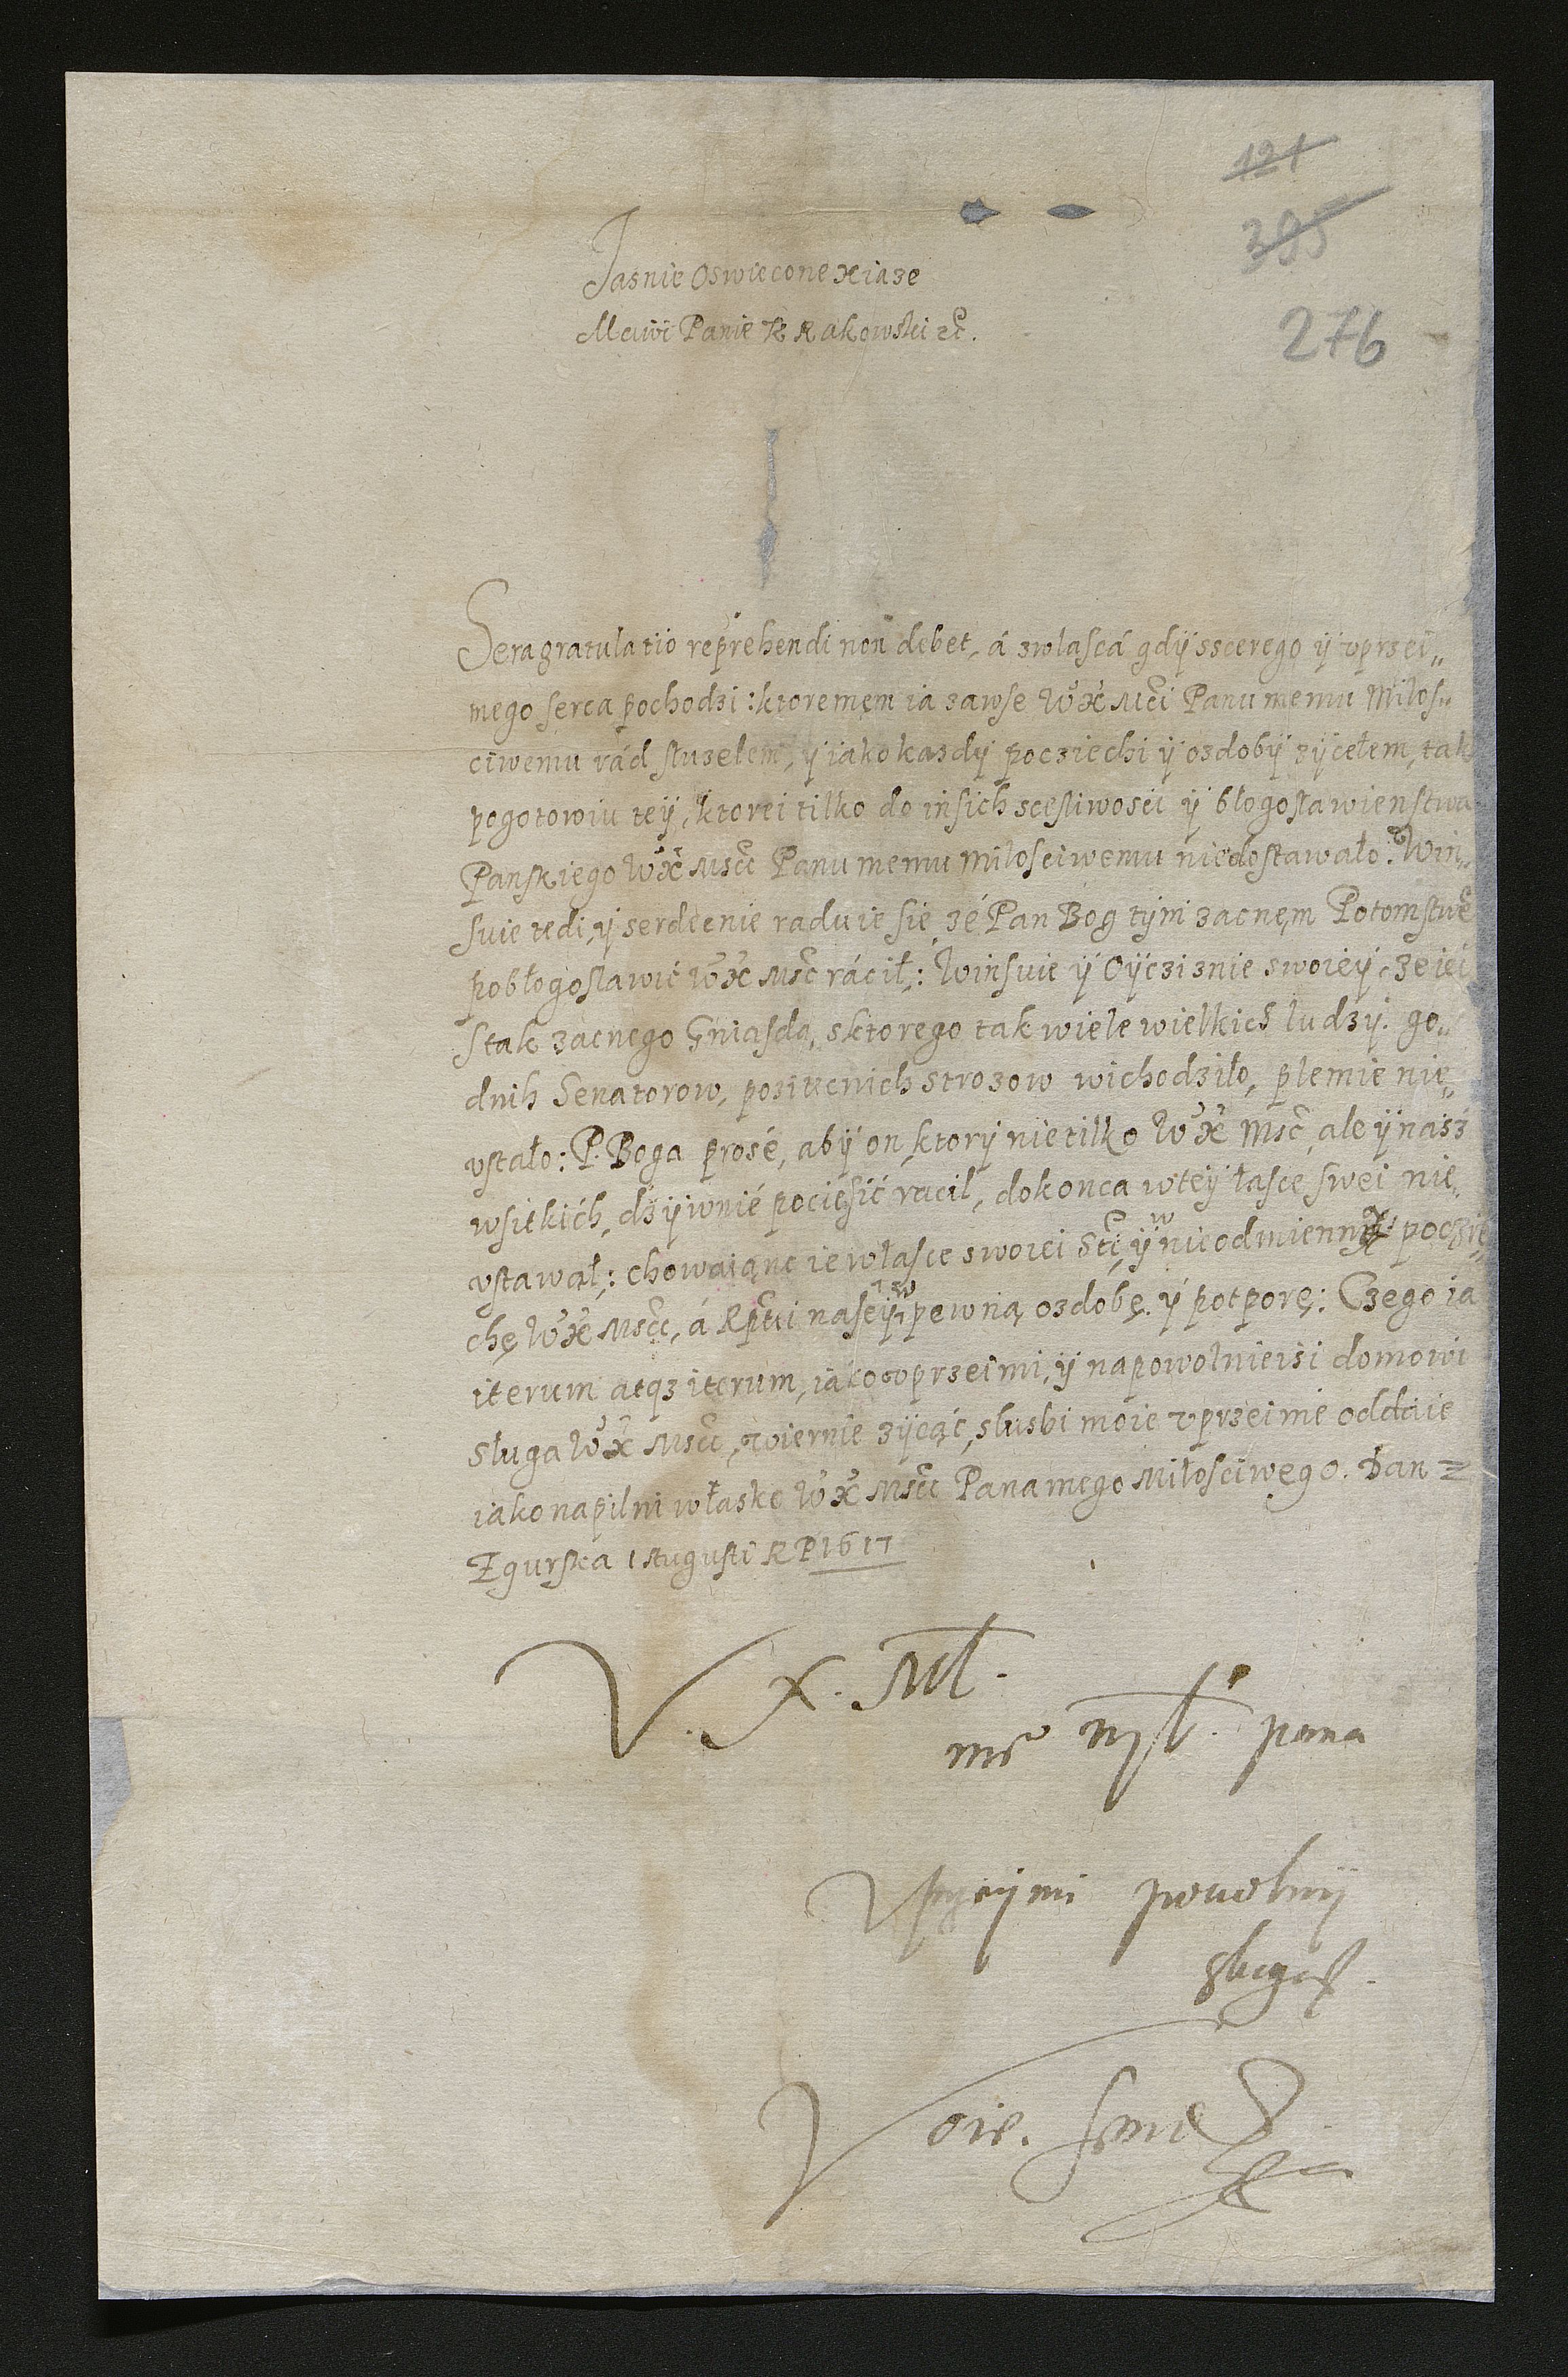 121
395
276
Jasnie Oswiecone Xiaze
Mciwi Panie Krakowski etc.
Sera gratulatio reprehendi non debet, á zwlascá gdÿ sscerego ÿ vprzei„
mego serca pochodzi: ktoremem ia zawse WX Mci Panu memu Milos„
ciwemu rád sluzełem, ÿ iako kazdÿ pocziechi ÿ ozdobÿ zÿcełem, tak
pogotowiu teÿ, ktorei tilko do insich scesliwosci ÿ błogoslawienstwa
Panskiego WX Mscc Panu memu milosciwemu niedostawało. Win„
suie tedi, ÿ serdecnie raduie sie, zé Pan Bog tÿm zacnęm Potomstwe
pobłogosławić WX Msc rácił: Winsuie ÿ Oÿcziznie swoieÿ, ze iei
stak zacnego Gniazda, sktorego tak wiele wielkich ludzÿ. go„
dnih Senatorow, pozitecnich strozow wichodziło, plemie nie„
vstało: P. Boga prosé, abÿ on, ktorÿ nie tilko WX Msc, ale ÿ nasz
wsitkich, dzÿwnié pociesić racil, dokonca wteÿ łasce swei nie„
vstawał: chowaiąnc ie własce swoiei Stei, ÿ w nieodmienną poczie„
chę WX Mscc, á Rptei naseÿ w pewną ozdobę ÿ potporę: Czego ia
iterum atqz iterum, iako vprzeimi, ÿ napowolnieisi domowi
sługa WX Mscc, wiernie zÿcąc, slusbi moie vprzeimé oddaie
iako napilni właske WX Mscc Pana mego Miłosciwego. Dan z
Zgurska 1 Augusti RP 1617
V. X. Mł.
me Mł. pana
Vprzeÿmi powolnÿ
sluga